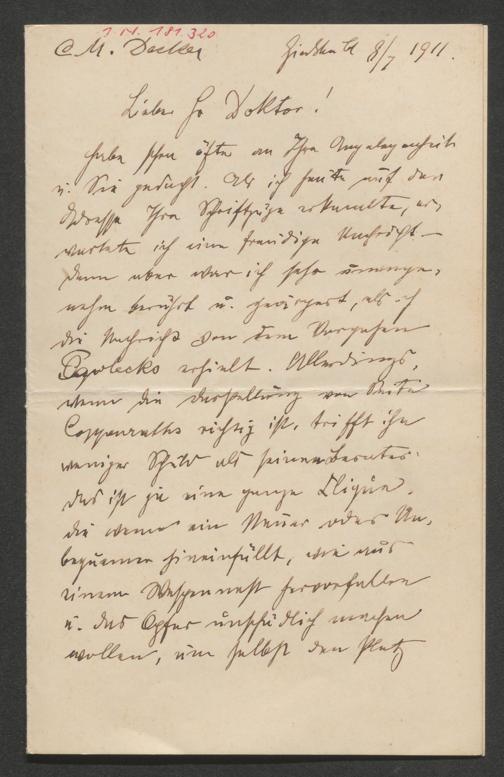 I.N. 181.320
C. M. Decker 8/7 1911.
Lieber Hr Doktor!
Habe schon öfter an Ihre Angelegenheit
u. Sie gedacht. Als ich heute auf der
Adresse Ihre Schriftzüge erkannte, er-
wartete ich eine freudige Nachricht –
dann aber war ich sehr unange-
nehm berührt u. geärgert, als ich
die Nachricht von dem Vorgehen
erhielt. Allerdings,
wenn die Darstellung von Seite
Coppenraths richtig ist, trifft ihn
weniger Schuld als seinen Berater.
Das ist ja eine ganze Clique,
die wenn ein Neuer oder Un-
bequemer hineinfällt, wie aus
einem Wespennest hervorfallen
u. das Opfer unschädlich machen
wollen, um selbst den Platz